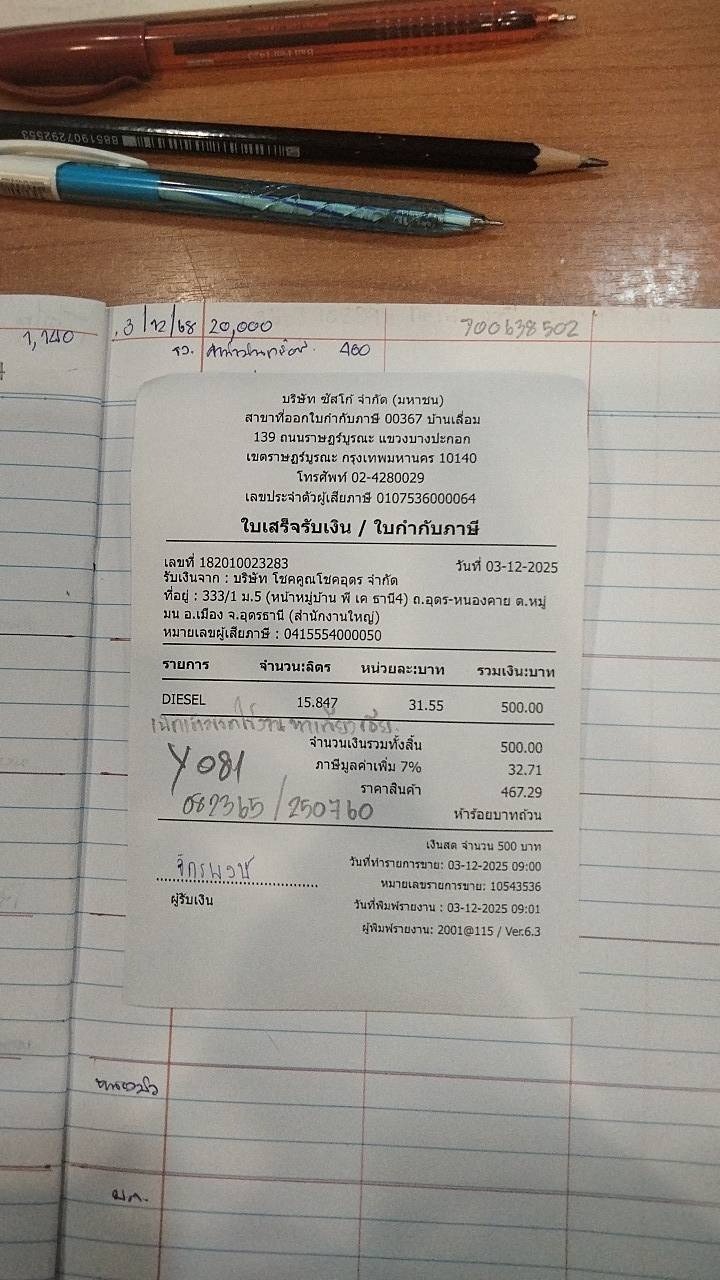 8851907292553
1,140
3/12/68 20,000
900638502
รว.
460
บริษัท ซัสโก้ จำกัด (มหาชน)
สาขาที่ออกใบกำกับภาษี 00367 บ้านเลื่อม
139 ถนนราษฎร์บูรณะ แขวงบางปะกอก
เขตราษฎร์บูรณะ กรุงเทพมหานคร 10140
โทรศัพท์ 02-4280029
เลขประจำตัวผู้เสียภาษี 0107536000064
ใบเสร็จรับเงิน / ใบกำกับภาษี
เลขที่ 182010023283 วันที่ 03-12-2025
รับเงินจาก : บริษัท โชคคูณโชคอุดร จำกัด
ที่อยู่ : 333/1 ม.5 (หน้าหมู่บ้าน พี เค ธานี4) ถ.อุดร-หนองคาย ต.หมู
มน อ.เมือง จ.อุดรธานี (สำนักงานใหญ่)
หมายเลขผู้เสียภาษี : 0415554000050
รายการ จำนวน:ลิตร หน่วยละ:บาท รวมเงิน:บาท
DIESEL 15.847 31.55 500.00
จำนวนเงินรวมทั้งสิ้น 500.00
Y081
ภาษีมูลค่าเพิ่ม 7% 32.71
ราคาสินค้า 467.29
082365/250760
ห้าร้อยบาทถ้วน
เงินสด จำนวน 500 บาท
วันที่ทำรายการขาย: 03-12-2025 09:00
จักรพงษ์
หมายเลขรายการขาย: 10543536
ผู้รับเงิน
วันที่พิมพ์รายงาน : 03-12-2025 09:01
ผู้พิมพ์รายงาน: 2001@115 / Ver.6.3